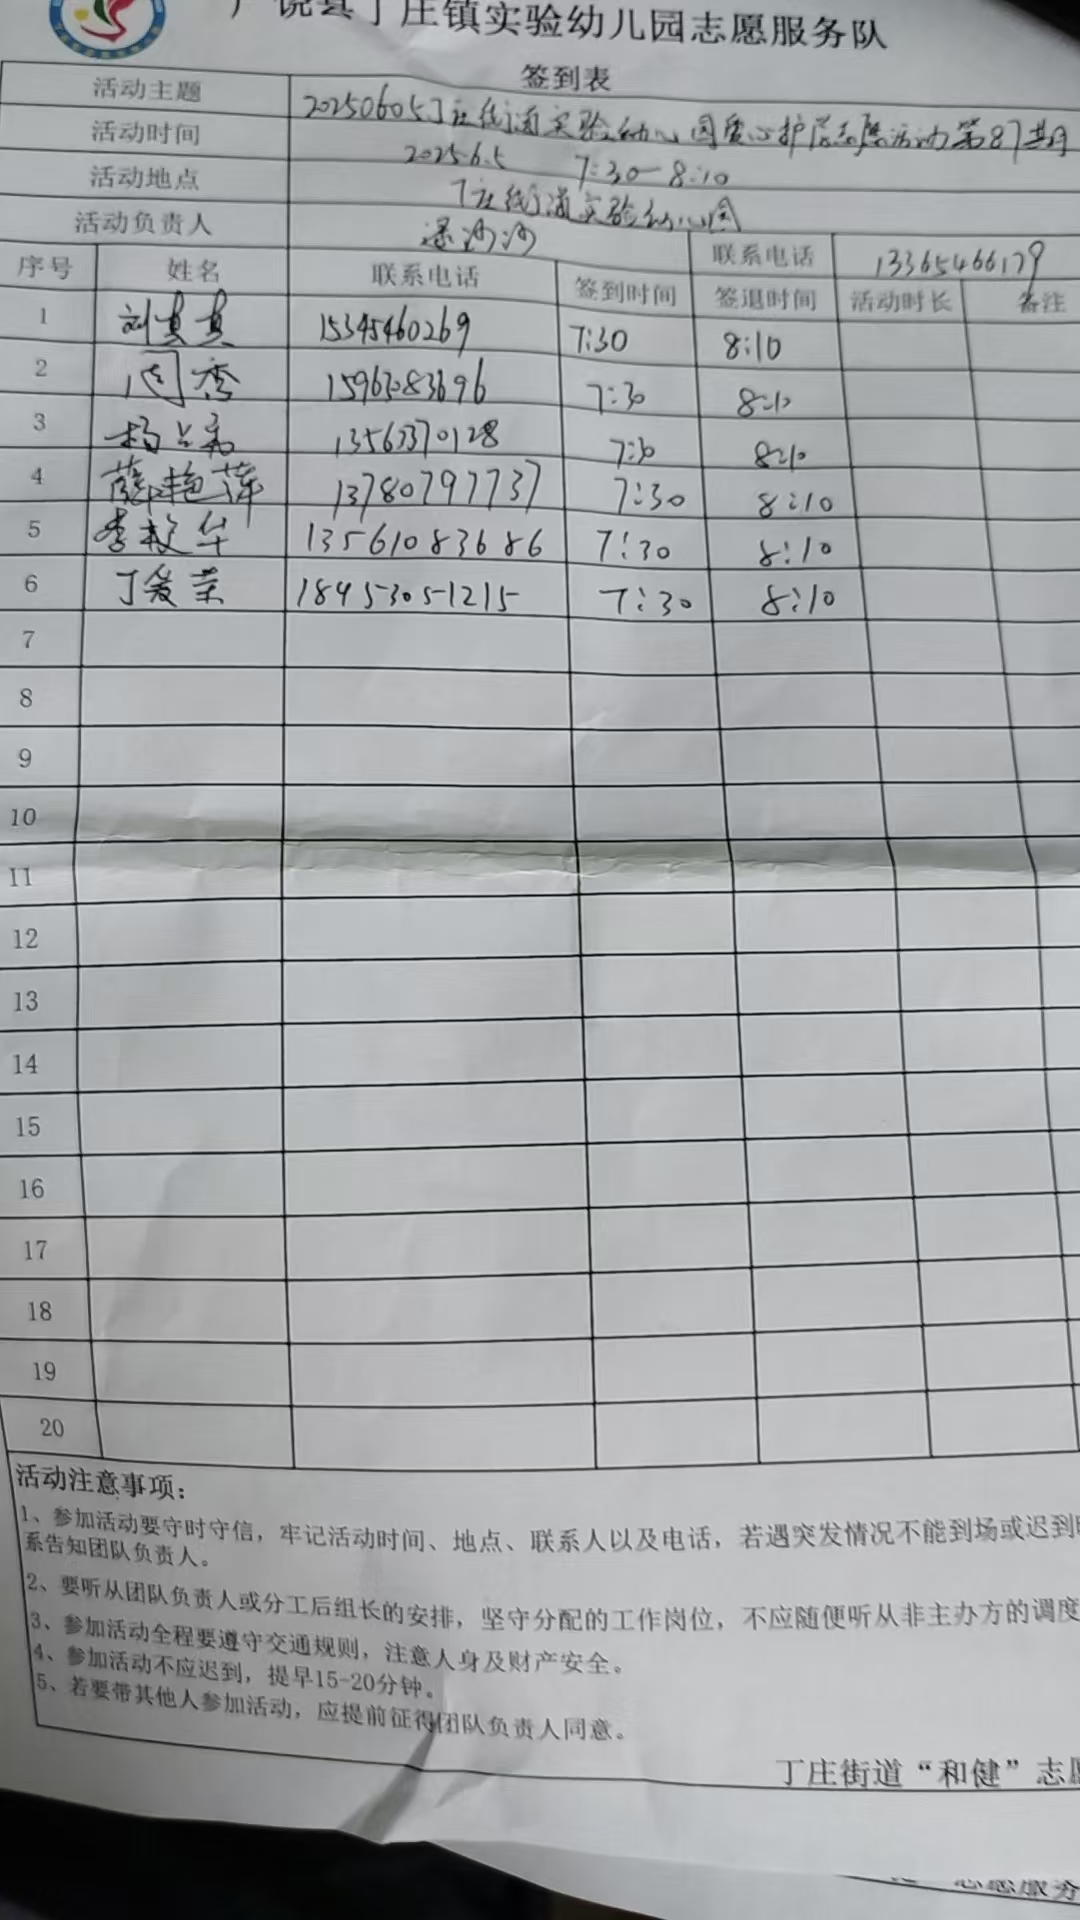 广饶县丁庄镇实验幼儿园志愿服务队
签到表
活动主题 20250605丁庄街道实验幼儿园爱心护学志愿活动第87期
活动时间 2025.6.5 7:30-8:10
活动地点 丁庄街道实验幼儿园
活动负责人 梁沙沙 联系电话 13365466179
序号 姓名 联系电话 签到时间 签退时间 活动时长 备注
1 刘真真 15345460269 7:30 8:10
2 周香 15963083696 7:30 8:10
3 杨 13563370128 7:30 8:10
4 薛艳萍 13780797737 7:30 8:10
5 李校华 13561083686 7:30 8:10
6 丁爱荣 18453051215 7:30 8:10
7
8
9
10
11
12
13
14
15
16
17
18
19
20
活动注意事项：
1、参加活动要守时守信，牢记活动时间、地点、联系人以及电话，若遇突发情况不能到场或迟到
系告知团队负责人。
2、要听从团队负责人或分工后组长的安排，坚守分配的工作岗位，不应随便听从非主办方的调度
3、参加活动全程要遵守交通规则，注意人身及财产安全。
4、参加活动不应迟到，提早15-20分钟。
5、若要带其他人参加活动，应提前征得团队负责人同意。
丁庄街道“和健”志愿
志愿服务